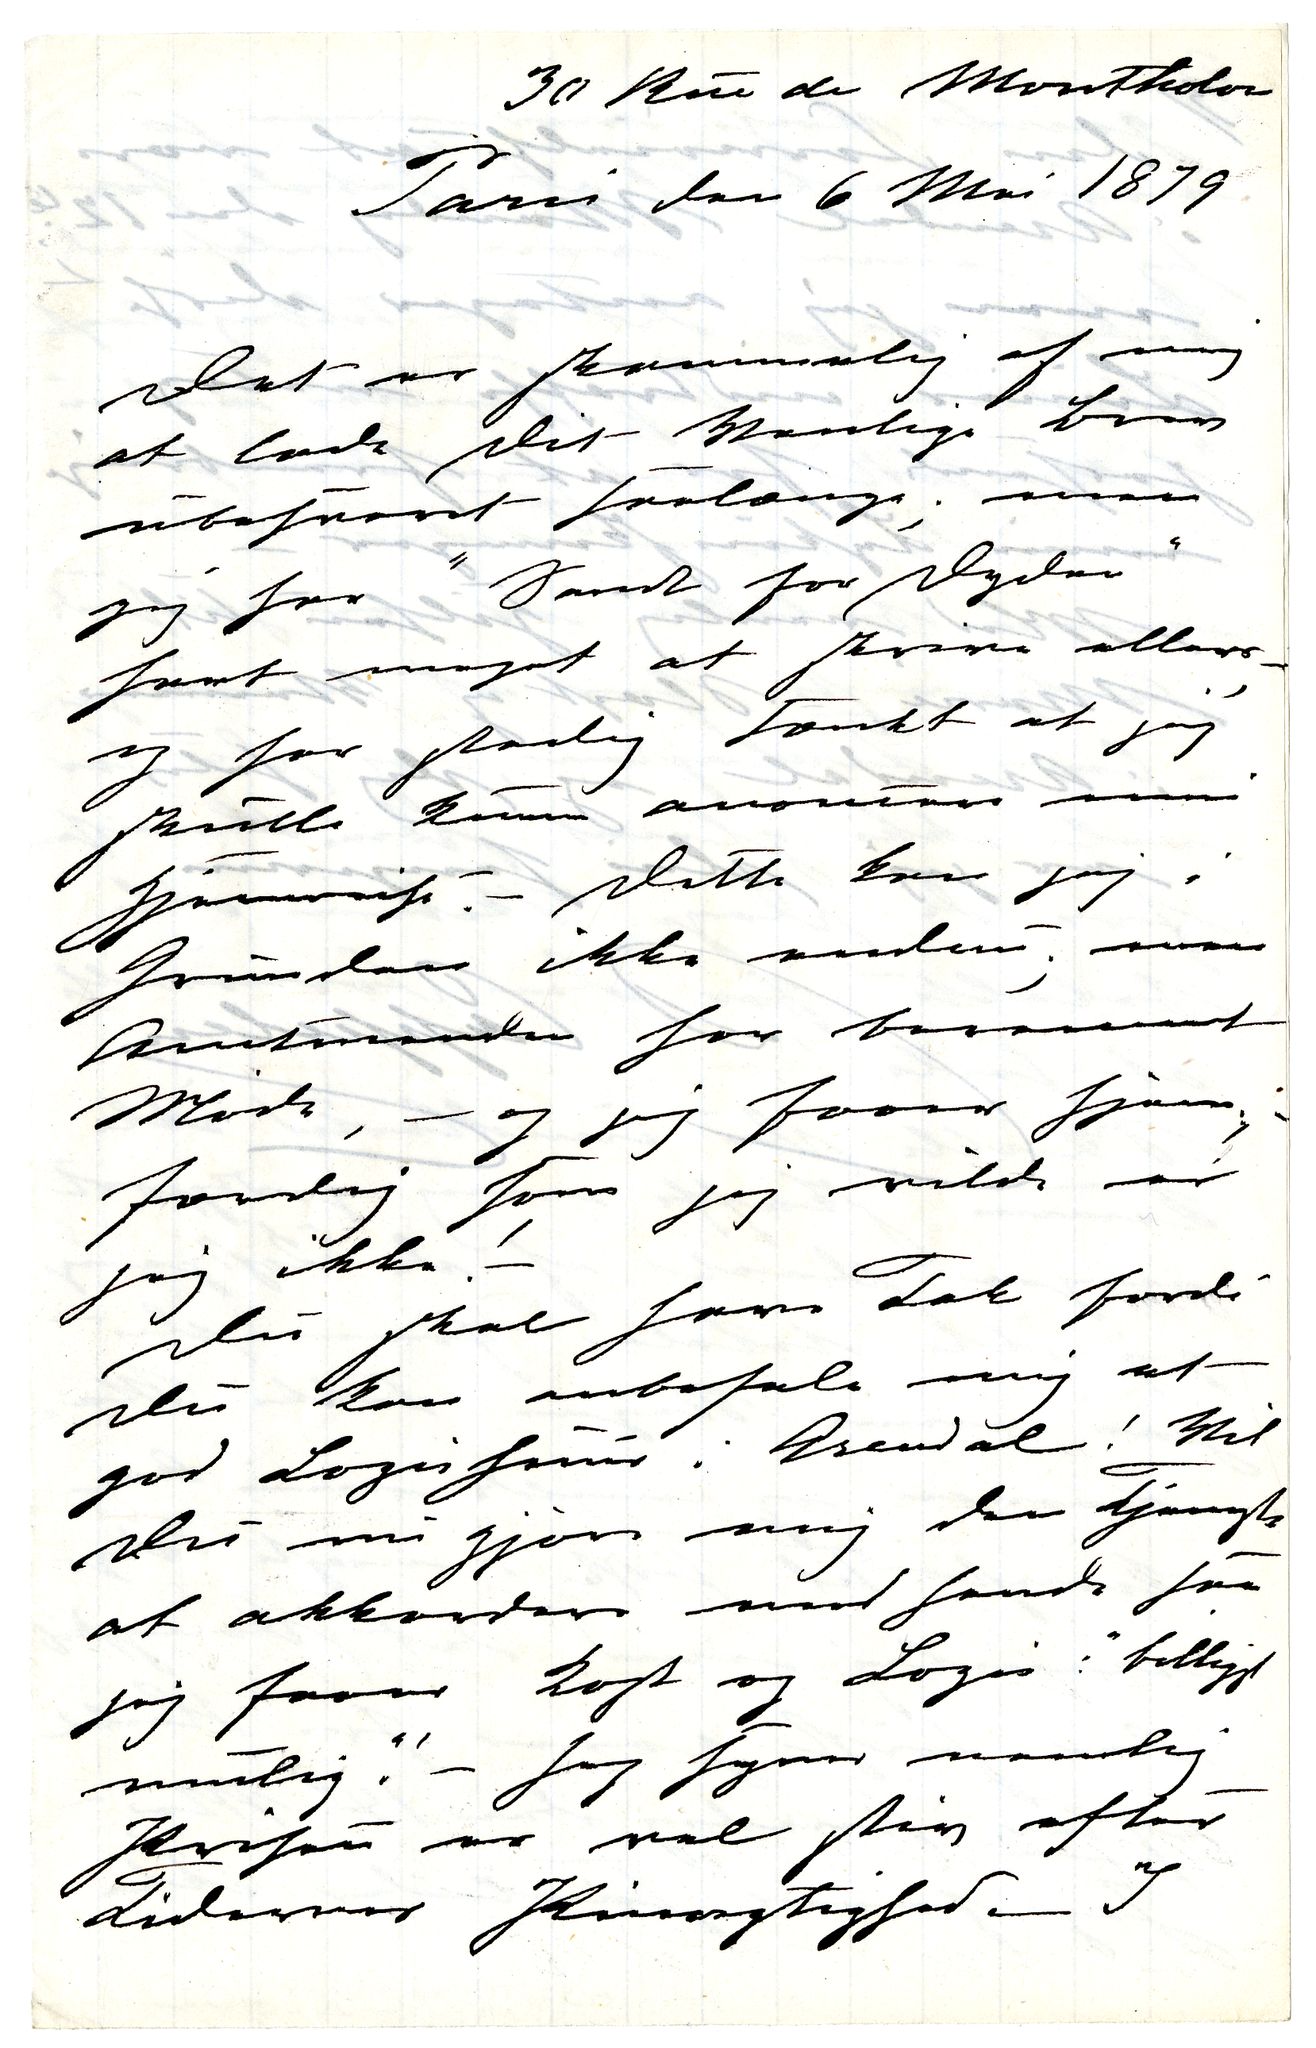 30 Rue de Montholon
Paris den 6 Mai 1879
Det er skammelig af mig
at lade Dit Venlige Brev
ubesvaret saalænge; men
jeg har "Sandt for Dyden"
havt meget at skrive ellers,-
og har stadig tænkt at jeg
skulle kunne anoncere min
Hjemreise.- Dette kan jeg i
Grunden ikke endnu; men
Amtmanden har berammet
Møde, - og jeg faaer hjem;-
færdig som jeg vilde er
jeg ikke!-
Du skal have Tak fordi
Du kan anbefale mig et
god Logishuus i Arendal! Vil
Du nu gjøre mig den Tjeneste
at akkordere med hende saa
jeg faaer Kost og Logis: "billigst
mulig"!- Jeg synes nemlig
Prisen er vel stiv efter
Tidernes Knæghed. I